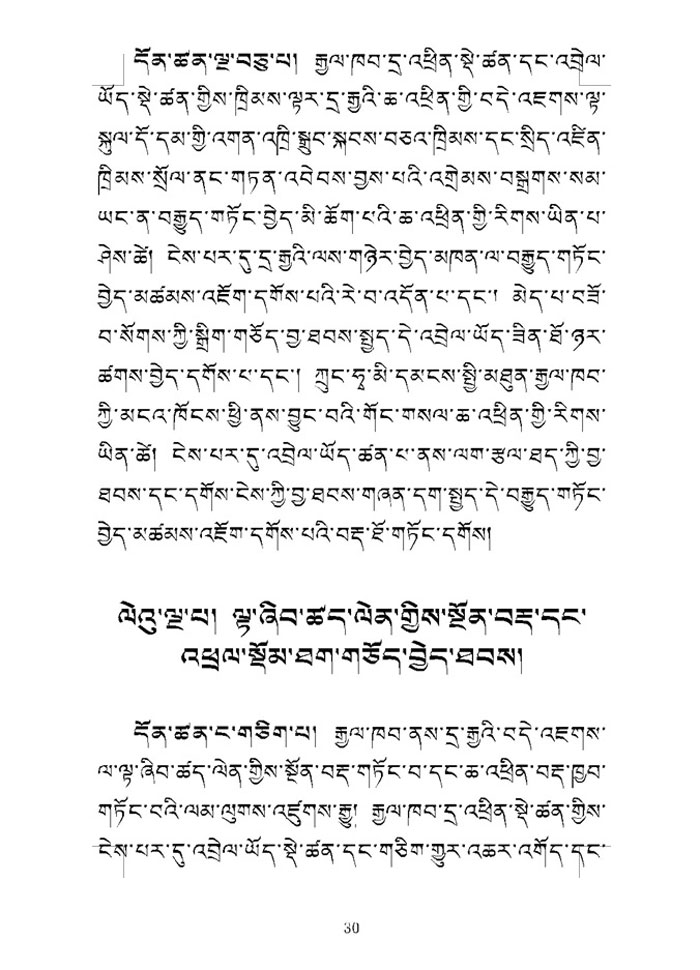 དོན་ཚན་ལྔ་བཅུ་པ། རྒྱལ་ཁབ་དྲ་འཕྲིན་སྡེ་ཚན་དང་འབྲེལ་
ཡོད་སྡེ་ཚན་གྱིས་ཁྲིམས་ལྟར་དྲ་རྒྱའི་ཆ་འཕྲིན་གྱི་བདེ་འཇགས་ལྟ་
སྐུལ་དོ་དམ་གྱི་འགན་འཁྲི་སྒྲུབ་སྐབས་བཅའ་ཁྲིམས་དང་སྲིད་འཛིན་
ཁྲིམས་སྲོལ་ནང་གཏན་འབེབས་བྱས་པའི་འགྲེམས་བསྒྲགས་སམ་
ཡང་ན་བརྒྱུད་གཏོང་བྱེད་མི་ཆོག་པའི་ཆ་འཕྲིན་གྱི་རིགས་ཡིན་པ་
ཤེས་ཚེ། ངེས་པར་དུ་དྲ་རྒྱའི་ལས་གཉེར་བྱེད་མཁན་ལ་བརྒྱུད་གཏོང་
བྱེད་མཚམས་འཇོག་དགོས་པའི་རེ་བ་འདོན་པ་དང་། མེད་པ་བཟོ་
བ་སོགས་ཀྱི་སྒྲིག་གཅོད་བྱ་ཐབས་སྤྱད་དེ་འབྲེལ་ཡོད་ཟིན་ཐོ་ཉར་
ཚགས་བྱེད་དགོས་པ་དང་། ཀྲུང་ཧྭ་མི་དམངས་སྤྱི་མཐུན་རྒྱལ་ཁབ་
ཀྱི་མངའ་ཁོངས་ཕྱི་ནས་བྱུང་བའི་གོང་གསལ་ཆ་འཕྲིན་གྱི་རིགས་
ཡིན་ཚེ། ངེས་པར་དུ་འབྲེལ་ཡོད་ཚན་པ་ནས་ལག་རྩལ་ཐད་ཀྱི་བྱ་
ཐབས་དང་དགོས་ངེས་ཀྱི་བྱ་ཐབས་གཞན་དག་སྤྱད་དེ་བརྒྱུད་གཏོང་
བྱེད་མཚམས་འཇོག་དགོས་པའི་བརྡ་ཐོ་གཏོང་དགོས།
ལེའུ་ལྔ་པ། ལྟ་ཞིབ་ཚད་ལེན་གྱིས་སྔོན་བརྡ་དང་
འཕྲལ་སྡོམ་ཐག་གཅོད་བྱེད་ཐབས།
དོན་ཚན་ང་གཅིག་པ། རྒྱལ་ཁབ་ནས་དྲ་རྒྱའི་བདེ་འཇགས་
ལ་ལྟ་ཞིབ་ཚད་ལེན་གྱིས་སྔོན་བརྡ་གཏོང་བ་དང་ཆ་འཕྲིན་བརྡ་ཁྱབ་
གཏོང་བའི་ལམ་ལུགས་འཛུགས་རྒྱུ། རྒྱལ་ཁབ་དྲ་འཕྲིན་སྡེ་ཚན་གྱིས་
ངེས་པར་དུ་འབྲེལ་ཡོད་སྡེ་ཚན་དང་གཅིག་གྱུར་འཆར་འགོད་དང་
30